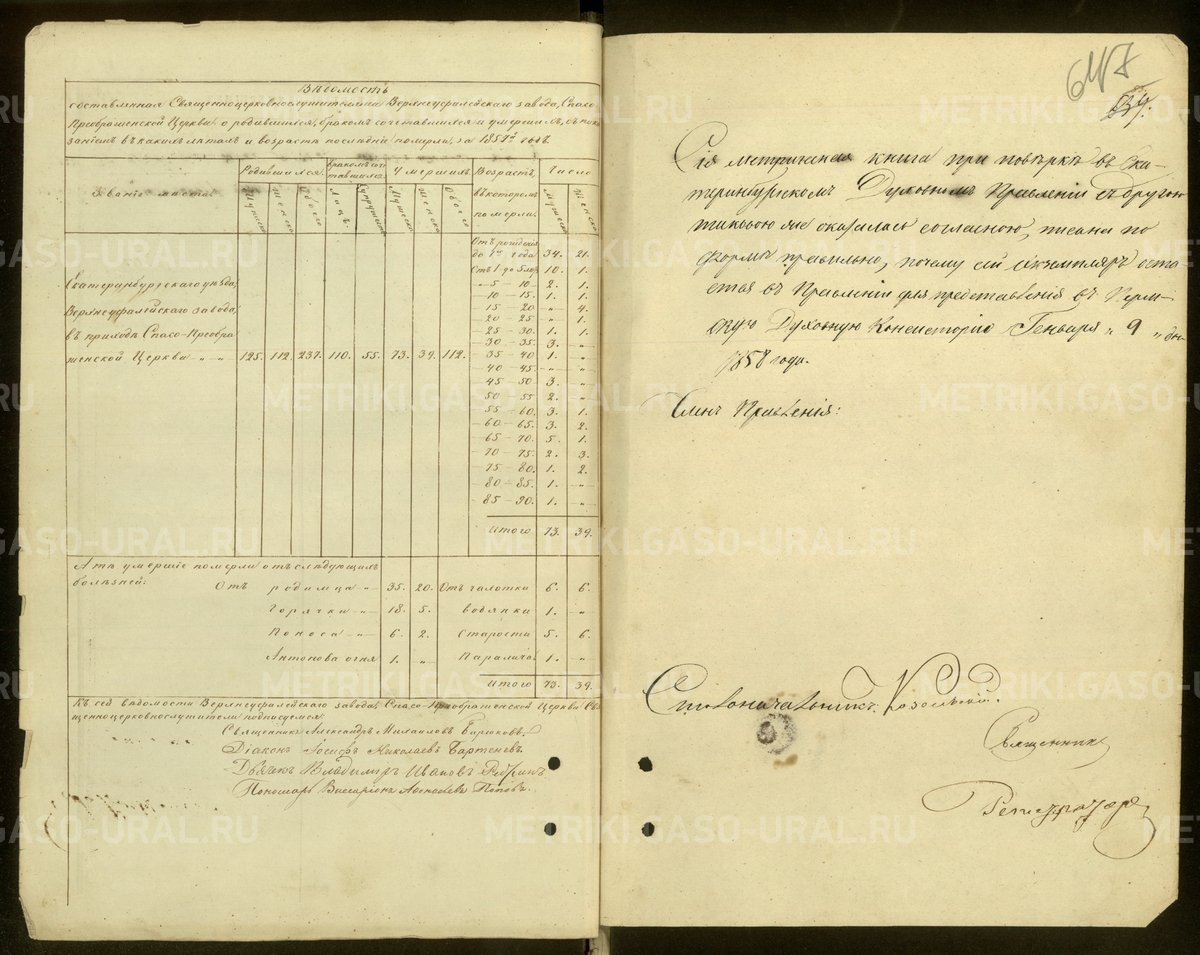 Вѣдомость
составленная Священноцерковнослужителями Верхнеуфалейскаго завода, Спасо-
Преображенской Церкви о родившихся, бракомъ сочетавшихся и умершихъ, съ пока
заніемъ въ какихъ лѣтахъ и возрастѣ послѣдніе померли, за 1857й годъ.
Званіе мѣста. Родившихся. бракомъ со-четавшихся. Умершихъ. Возрастъ, въ которомъ померли. Число
Мужеска Женска Обоего Лицъ. Супружествъ Мужеска Женска Обоего Мужеска Женска
Екатеринбургскаго уѣзда,
Верхнеуфалейскаго завода,
въ приходѣ Спасо-Преобра
женской Церкви „ „ 125. 112. 237. 110. 55. 73. 39. 112.
Отъ рожденія
до 1го года 34. 21.
Отъ 1 до 5 лѣтъ 10. 1.
– 5 – 10 – 2. 1.
– 10 – 15. 1. 1.
15 – 20 „ 4.
20 – 25 „ 1.
– 25 – 30. 1. 1.
– 30 – 35. 3. „
– 35 – 40 1. „
– 40 – 45. „ „
– 45 – 50 3. „
50 – 55 2. „
– 55 – 60. 3. 1.
– 60 – 65. 3. 2.
– 65 – 70. 5. 1.
– 70 – 75. 2. 3.
– 75 – 80. 1. 2.
– 80 – 85. 1. „
– 85 – 90. 1. „
Итого 73. 39.
А тѣ умершіе померли отъ слѣдующихъ
болѣзней:
Отъ родимца „ 35. 20. Отъ чахотки 6. 6.
Горячки „ 18. 5. водянки 1. „
Поноса „ 6. 2. Старости 5. 6.
Антонова огня 1. „ Паралича 1. „
Итого 73. 39.
Къ сей вѣдомости Верхнеуфалейскаго завода, Спасо-Преображенской Церкви Свя
щенноцерковнослужители подписуемся:
Священникъ Александръ Михаиловъ Бирюковъ.
Діаконъ Іосифъ Николаевъ Бартеневъ.
Дьячекъ Владимиръ Ивановъ
Пономарь Виссаріонъ Попов.
647
Сія метрическая книга при повѣркѣ въ Ека
теринбургскомъ Духовномъ Правленіи съ другою
таковою же оказалась согласною, писана по
формѣ правильно, почему сей экземпляръ оста
ется въ Правленіи для представленія въ Перм
скую Духовную Консисторію Генваря „ 9 „ дня
1858 года.
Членъ Правленія:
Священникъ
Регистраторъ
METRIKI.GASO-URAL.RU